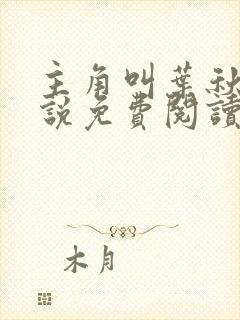 主角叫葉秋
説免費閱讀
木月